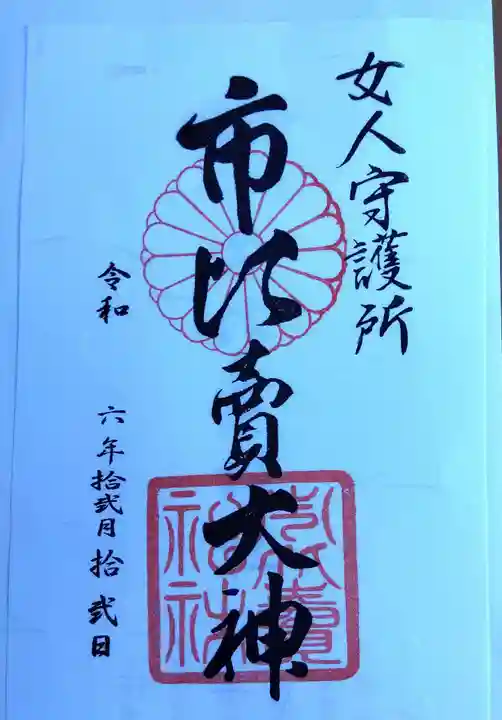 女人守護所
市比賣大神
市比賣神社
令和六年拾弐月拾弐日